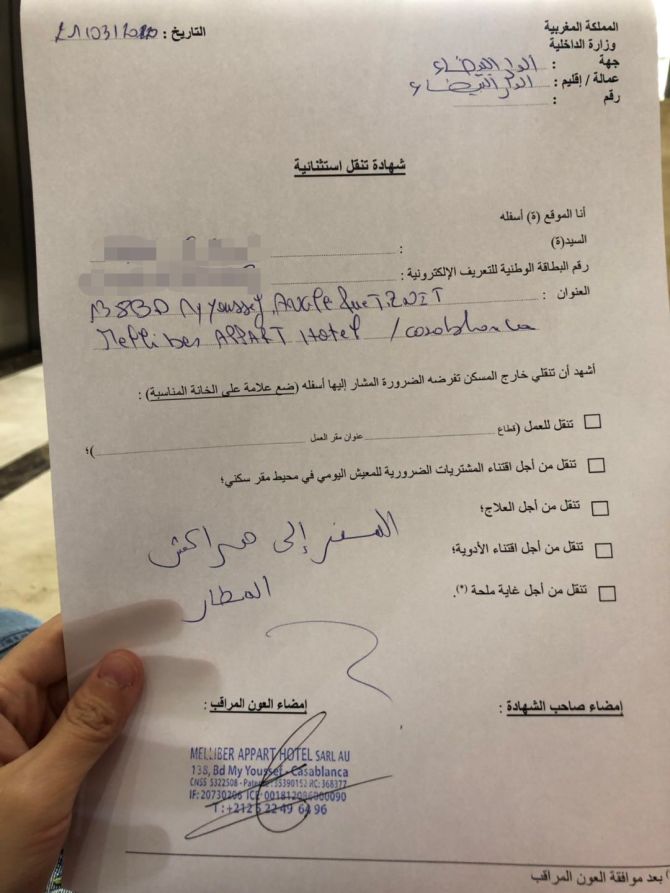 المملكة المغربية
وزارة الداخلية
جهة : الدار البيضاء
عمالة / إقليم : الدار البيضاء
رقم :
التاريخ : 21/03/2020
شهادة تنقل استثنائية
أنا الموقع (ة) أسفله
السيد(ة) :
رقم البطاقة الوطنية للتعريف الإلكترونية :
العنوان : 138 BD My Youssef, Angle Rue TIZNIT
Melliber APPART Hotel / Casablanca
أشهد أن تنقلي خارج المسكن تفرضه الضرورة المشار إليها أسفله (ضع علامة على الخانة المناسبة) :
تنقل للعمل (قطاع عنوان مقر العمل )؛
تنقل من أجل اقتناء المشتريات الضرورية للمعيش اليومي في محيط مقر سكني؛
تنقل من أجل العلاج؛
تنقل من أجل اقتناء الأدوية؛
تنقل من أجل غاية ملحة (*).
السفر إلى مراكش
المطار
إمضاء صاحب الشهادة :
إمضاء العون المراقب :
MELLIBER APPART HOTEL SARL AU
138, Bd My Youssef - Casablanca
CNSS 5322508 - Patente: 35390152 RC: 368377
IF: 20730206 ICE
T : +212 5 22 49 64 96
بعد موافقة العون المراقب